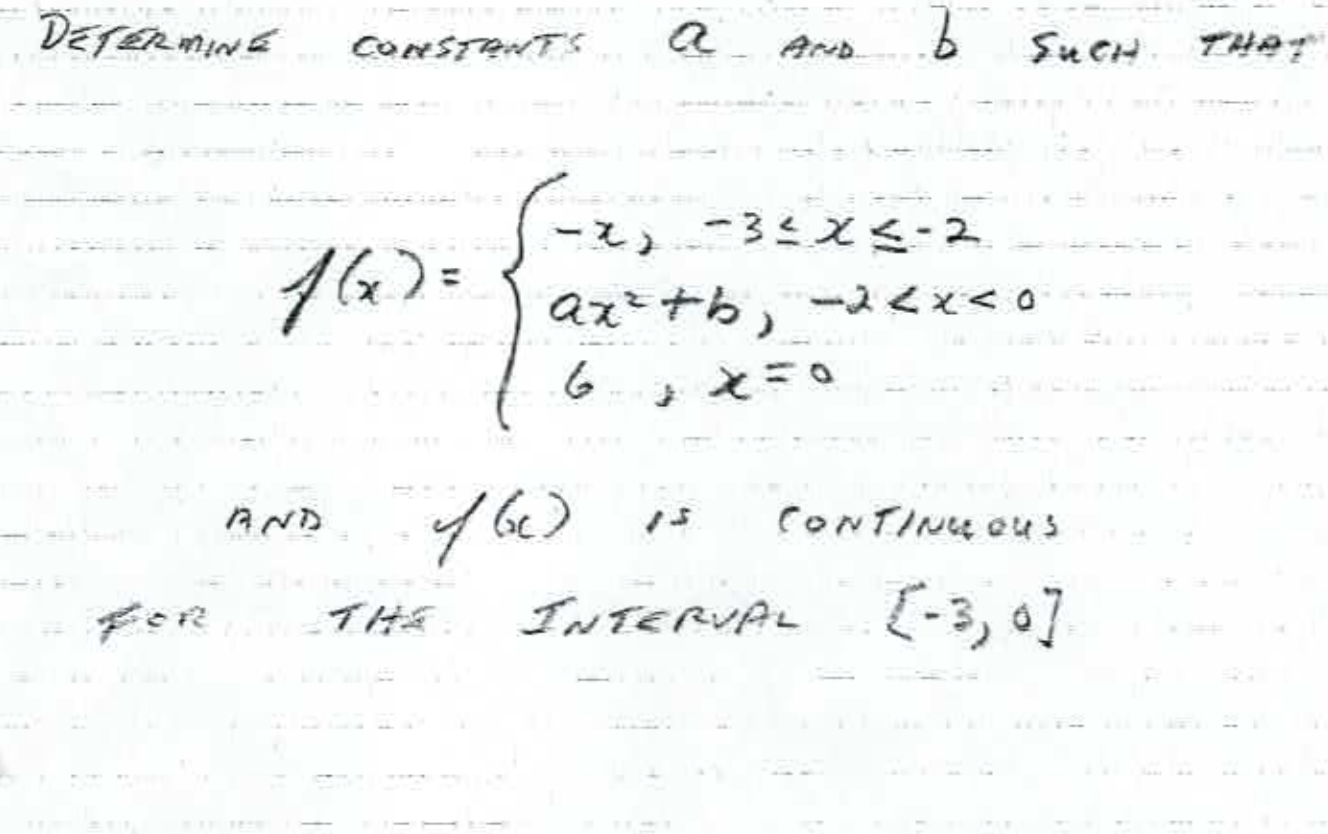 DETERMINE CONSTANTS a AND b SUCH THAT
f(x) = { -x, -3 ≤ x ≤ -2
ax² + b, -2 < x < 0
6, x = 0
AND f(x) IS CONTINUOUS
FOR THE INTERVAL [-3, 0]